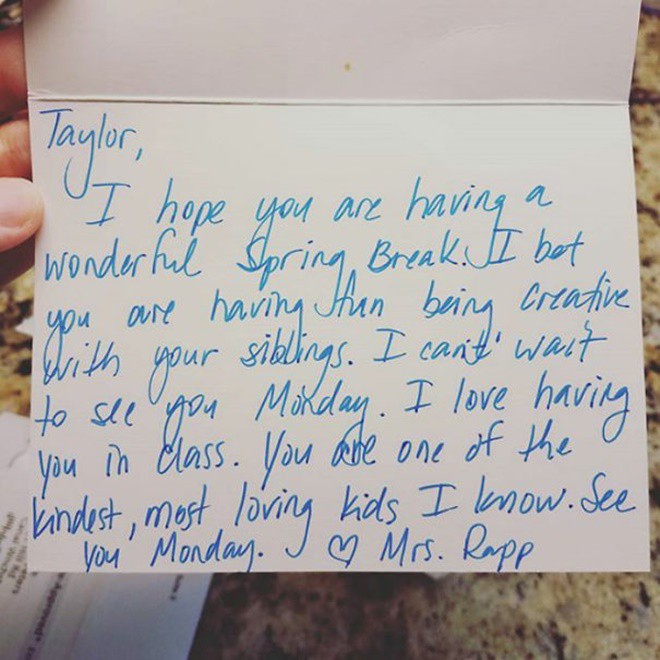 Taylor,
I hope you are having a
wonderful Spring Break. I bet
you are having fun being creative
with your siblings. I can't wait
to see you Monday. I love having
you in class. You are one of the
kindest, most loving kids I know. See
you Monday. ♡ Mrs. Rapp